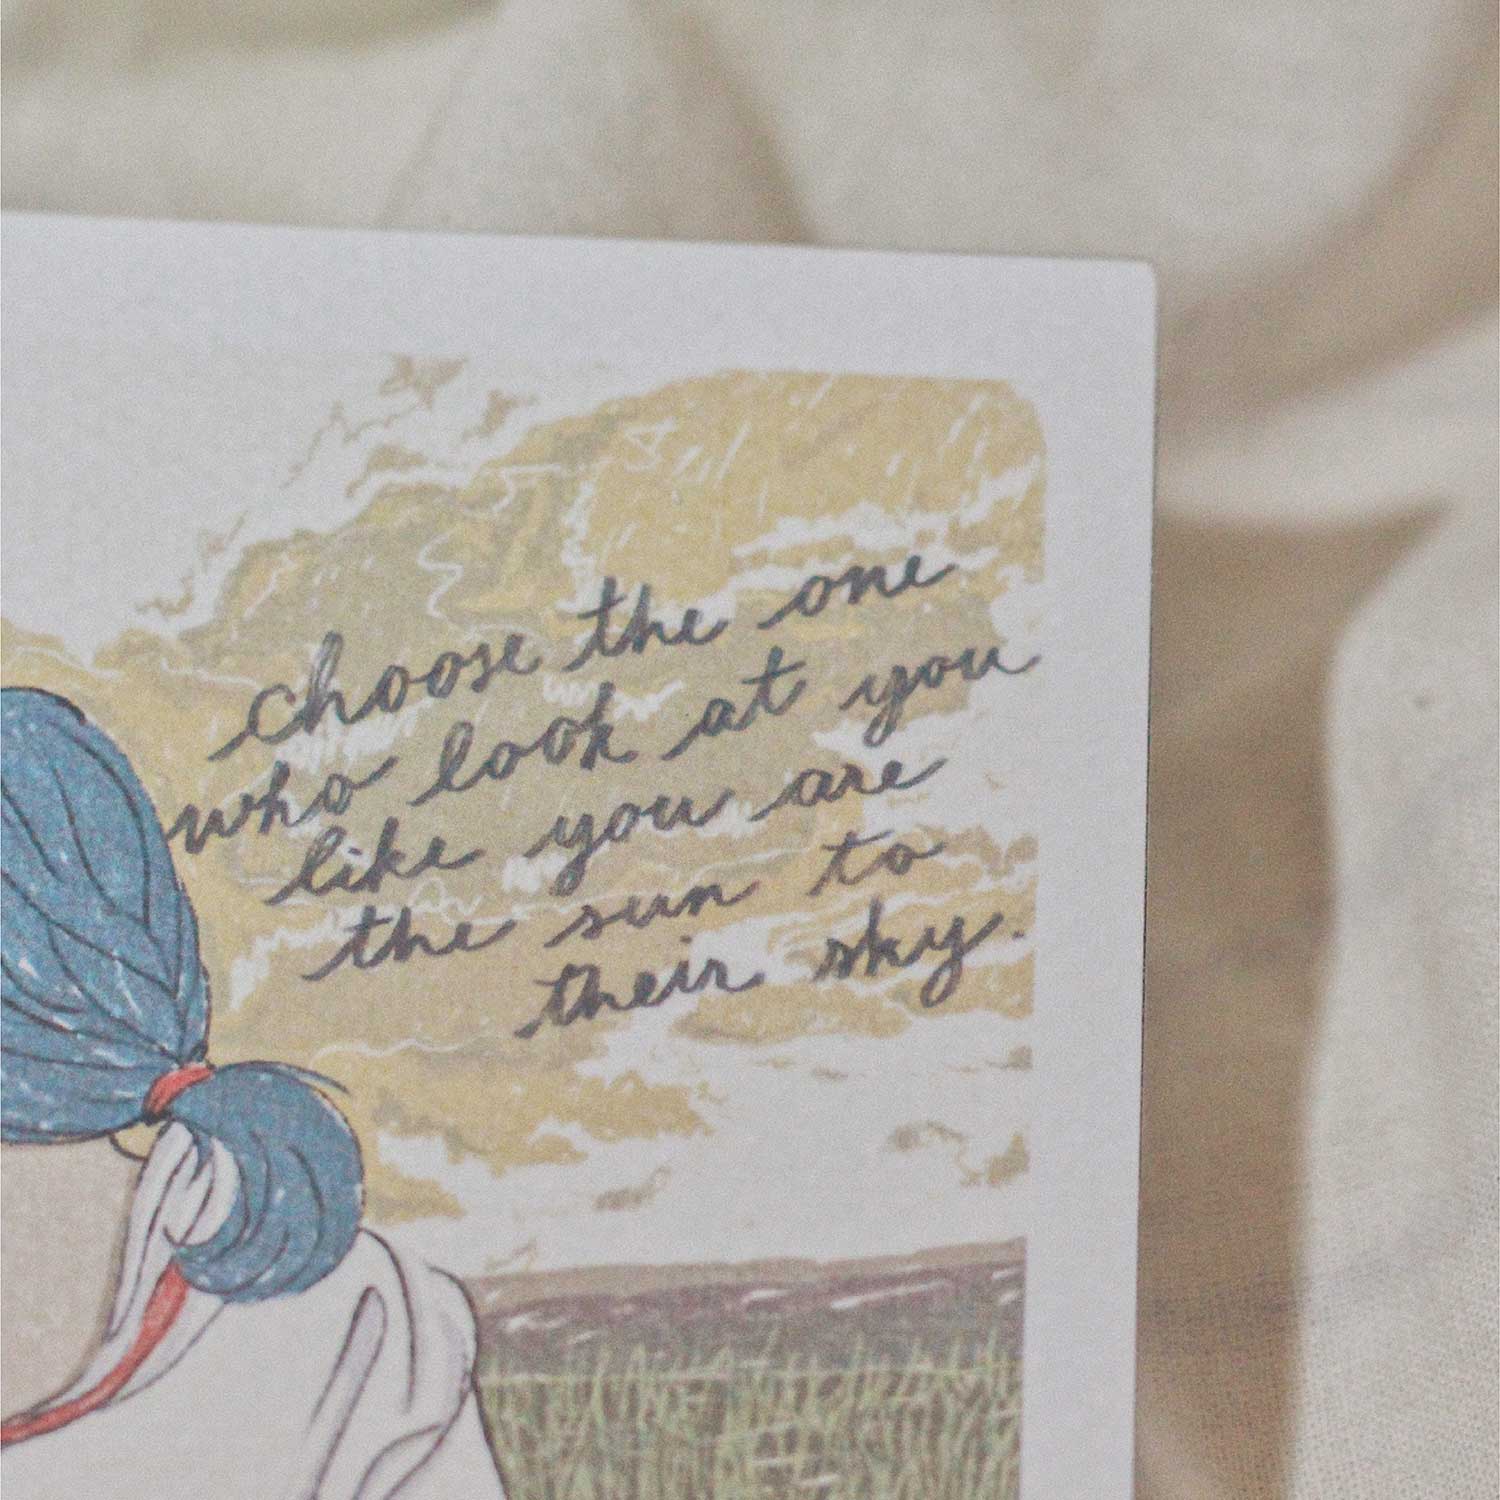 choose the one
who look at you
like you are
the sun to
their sky.